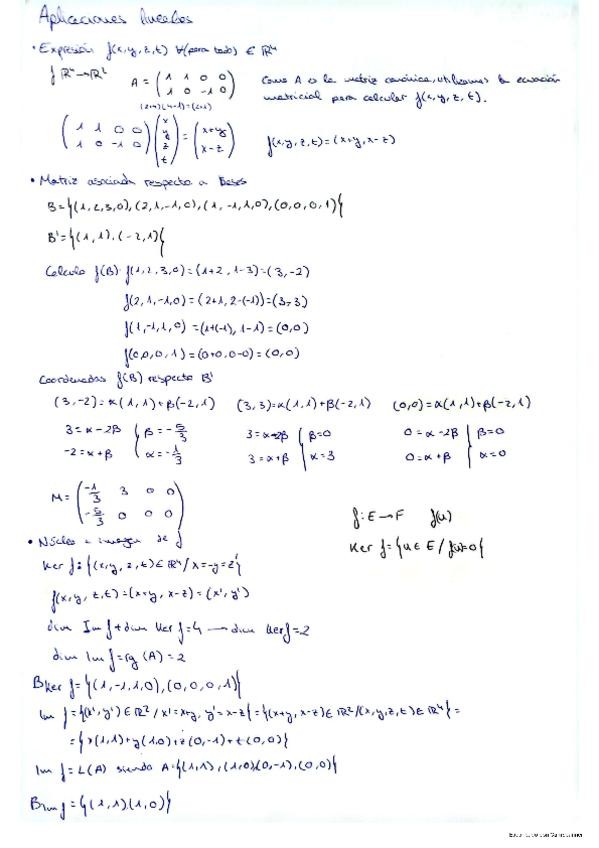 Aplicaciones lineales
• Expresión f(x,y,z,t) ∀(para todo) ∈ ℝ⁴
f ℝ⁴→ℝ² A = (1 1 0 0 / 1 0 -1 0) Como A es la matriz canónica, utilizamos la ecuación
matricial para calcular f(x,y,z,t).
(1 1 0 0 / 1 0 -1 0) (x y z t) = (x+y / x-z) f(x,y,z,t)=(x+y, x-z)
• Matriz asociada respecto a Bases
B={(1,2,3,0),(2,1,-1,0),(1,-1,1,0),(0,0,0,1)}
B'={(1,1),(-2,1)}
Calculo f(B): f(1,2,3,0)=(1+2,1-3)=(3,-2)
f(2,1,-1,0)=(2+1,2-(-1))=(3,3)
f(1,-1,1,0)=(1+(-1),1-1)=(0,0)
f(0,0,0,1)=(0+0,0-0)=(0,0)
Coordenadas f(B) respecto B'
(3,-2)=α(1,1)+β(-2,1) (3,3)=α(1,1)+β(-2,1) (0,0)=α(1,1)+β(-2,1)
3=α-2β β=-5/3 3=α-2β β=0 0=α-2β β=0
-2=α+β α=-1/3 3=α+β α=3 0=α+β α=0
M = (-1/3 3 0 0 / -5/3 0 0 0)
f:E→F f(u)
• Núcleo e imagen de f Ker f={u∈E/f(u)=0}
Ker f={(x,y,z,t)∈ℝ⁴/x=-y=z}
f(x,y,z,t)=(x+y, x-z)=(x',y')
dim Im f+dim Ker f=4 → dim Ker f=2
dim Im f=rg(A)=2
B Ker f={(1,-1,1,0),(0,0,0,1)}
Im f={(x',y')∈ℝ²/x'=x+y, y'=x-z}={(x+y,x-z)∈ℝ²/(x,y,z,t)∈ℝ⁴}=
={x(1,1)+y(1,0)+z(0,-1)+t(0,0)}
Im f=L(A) siendo A={(1,1),(1,0)(0,-1),(0,0)}
B Im f={(1,1)(1,0)}